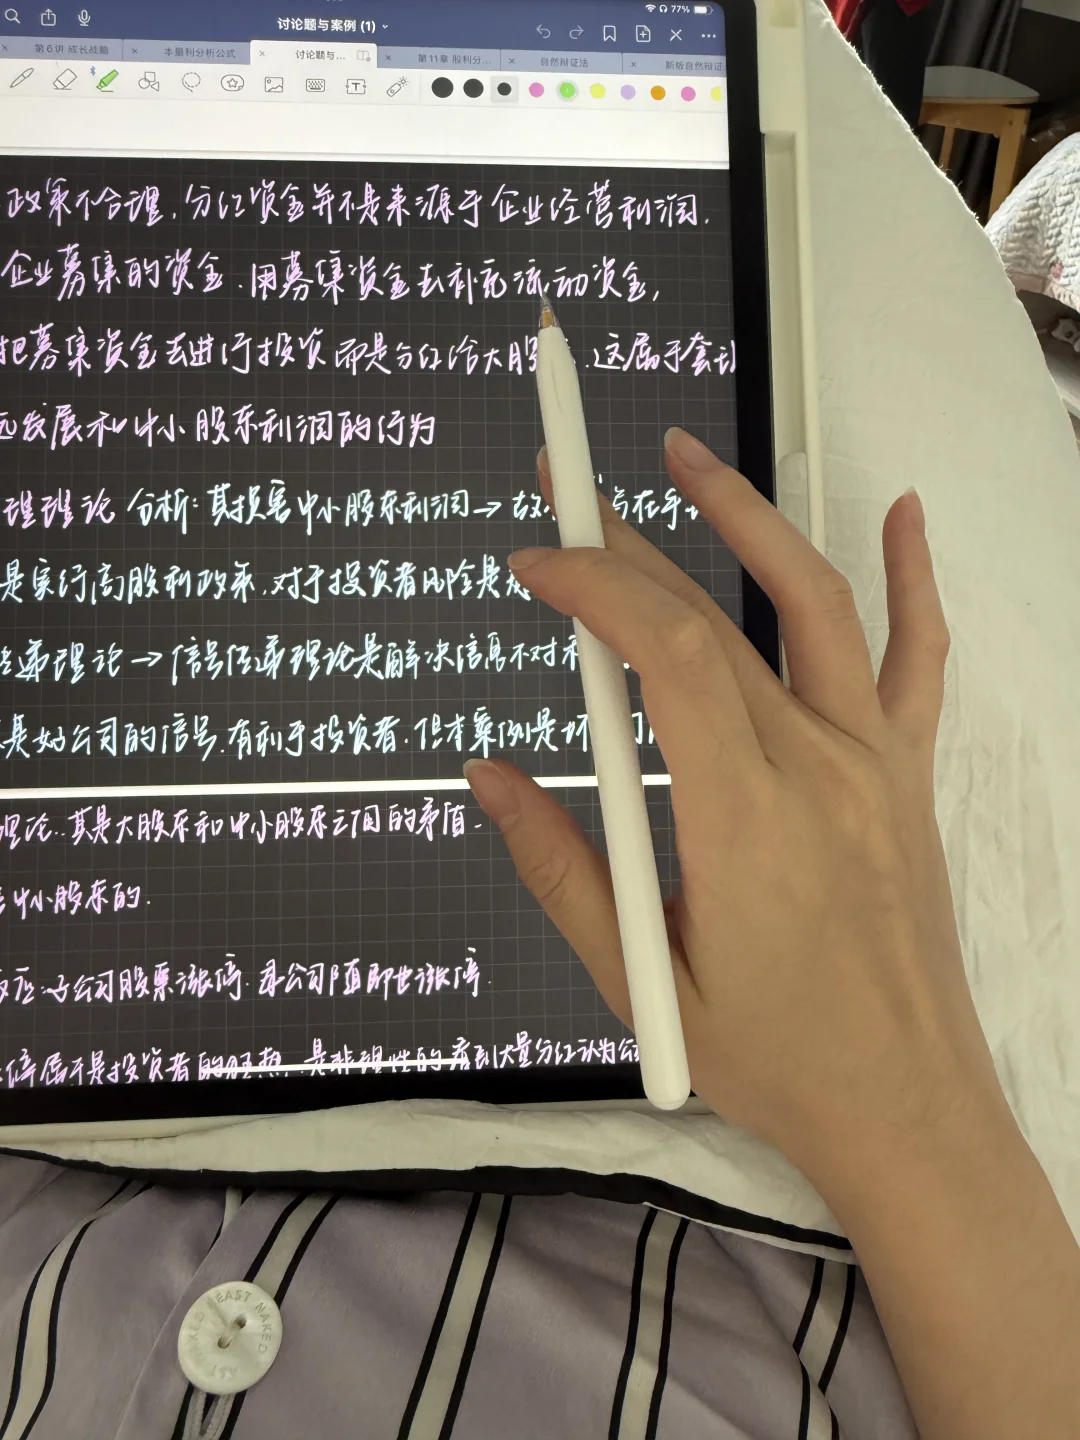 77%
讨论题与案例 (1)
第6讲 成长战略
本量利分析公式
讨论题与...
第11章 股利分...
自然辩证法
新版自然辩证
政策不合理,分红资金并不是来源于企业经营利润.
企业募集的资金.用募集资金去补充流动资金,
把募集资金去进行投资而是分红给大股 .这属于套
发展和中小股东利润的行为
理理论 分析:其损害中小股东利润→ 在手
是实行高股利政策,对于投资者 是
递理论→信号传递理论是解决信息不对
是好公司的信号,有利于投资者.但本案例是坏
理论..其是大股东和中小股东之间的矛盾-
中小股东的.
应:子公司股票涨停.母公司随即也涨停.
停属于是投资者的 是非理性的看到大量分红认为公
EAST NAKED